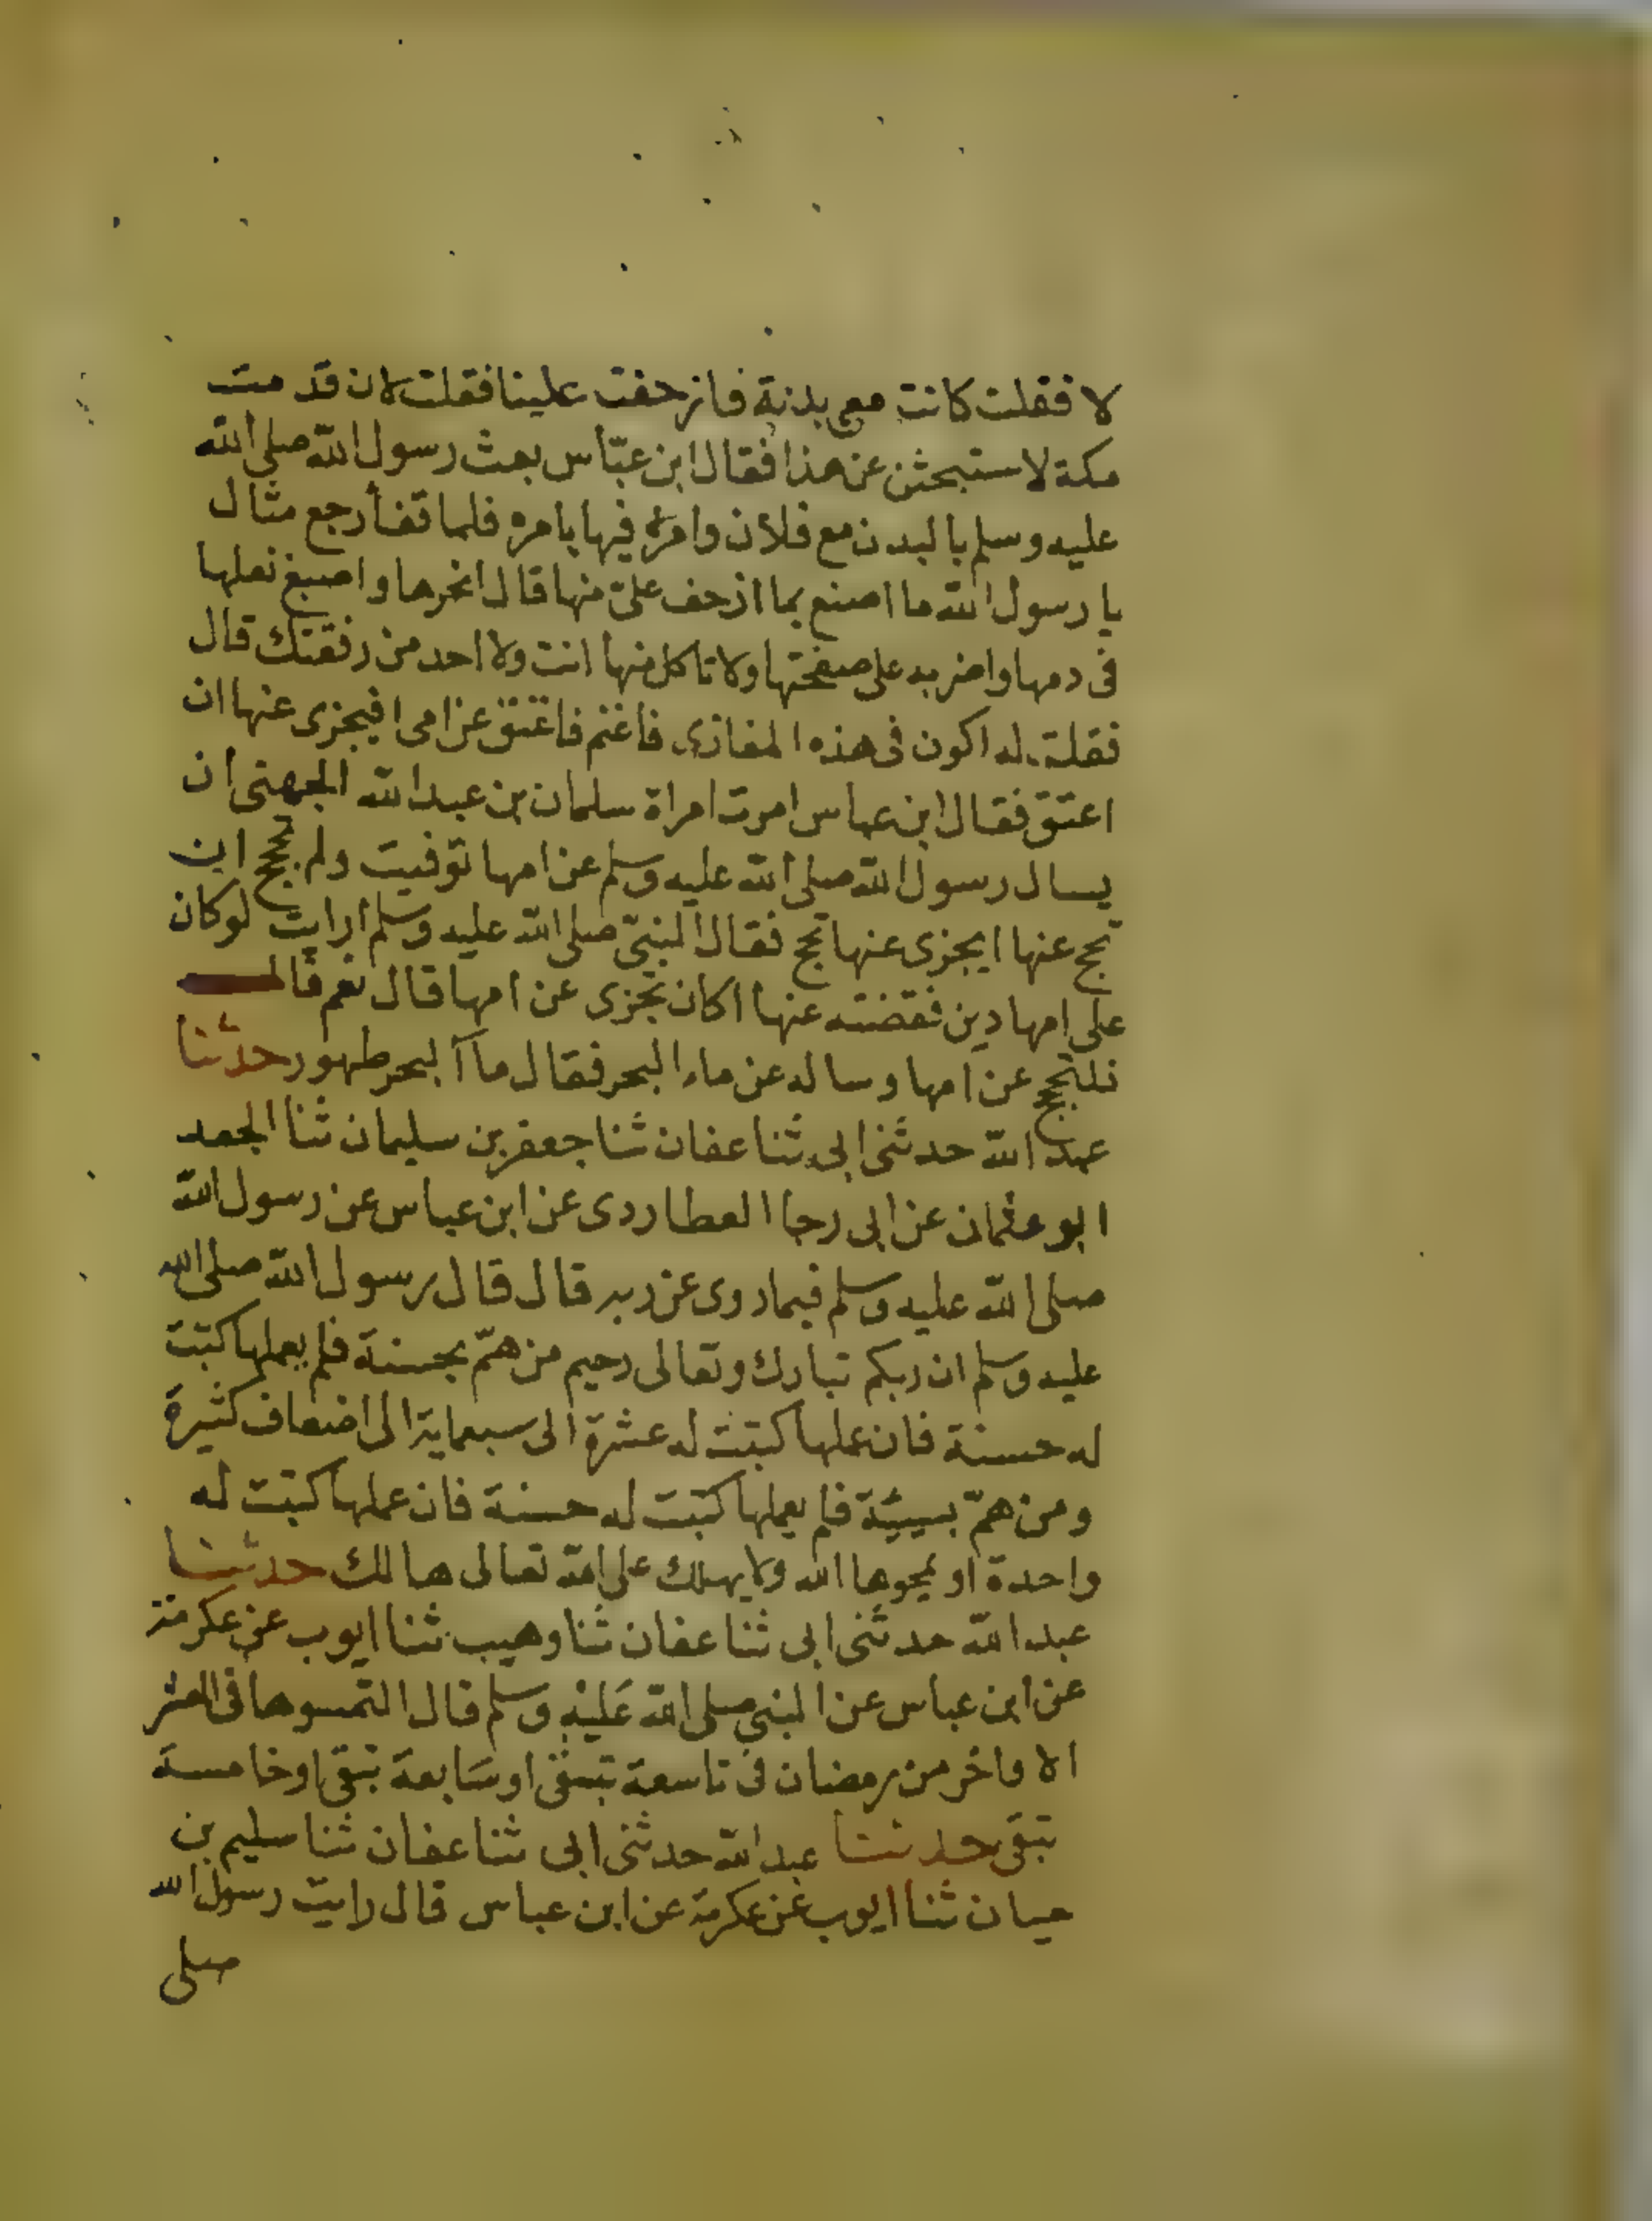 لا فقلت كانت معى بدنة فازحفت علينا فقلت لان قدمت
مكة لاستبحثن عن هذا فقال ابن عبّاس بعث رسول الله صلى الله
عليه وسلم بالبدن مع فلان وامره فيها بامره فلما قفا رجع فقال
يا رسول الله ما اصنع بما ازحف علىّ منها قال انحرها واصبغ نعلها
فى دمها واضربه على صفحتها ولا تاكل منها انت ولا احد من رفقتك قال
فقلت له اكون فى هذه المغازى فاغنم فاعتق عن امى افيجزى عنها ان
اعتق فقال ابن عباس امرت امراة سلمان بن عبد الله الجهنى ان
يسال رسول الله صلى الله عليه وسلم عن امها توفيت ولم تحجج اين
تحج عنها ايجزى عنها تحج فقال النبىّ صلى الله عليه وسلم ارايت لو كان
على امها دين فقضته عنها اكان تجزى عن امها قال نعم قال
فلتحجج عن امها وساله عن ماء البحر فقال مآ البحر طهور حدثنا
عبد الله حدثنى ابى ثنا عفان ثنا جعفر بن سليمان ثنا الجعد
ابو عثمان عن ابى رجا العطاردى عن ابن عباس عن رسول الله
صلى الله عليه وسلم فيما روى عن ربه قال قال رسول الله صلى الله
عليه وسلم ان ربكم تبارك وتعالى رحيم من همّ بحسنة فلم يعملها كتبت
له حسنة فان عملها كتبت له عشرة الى سبعماية الى اضعاف كثيرة
ومن همّ بسيئة فلم يعملها كتبت له حسنة فان عملها كتبت له
واحدة او يمحوها الله ولا يهلك على الله تعالى هالك حدثنا
عبد الله حدثنى ابى ثنا عفان ثنا وهيب ثنا ايوب عن عكرمة
عن ابن عباس عن النبى صلى الله عَليْهِ وسلم قال التمسوها فى العشر
الاواخر من رمضان فى تاسعة تبقى او سَابعة تبقى او خامسة
تبقى حدثنا عبد الله حدثنى ابى ثنا عفان ثنا سليم بن
حيان ثنا ايوب عن عكرمة عن ابن عباس قال رايت رسول الله
صلى